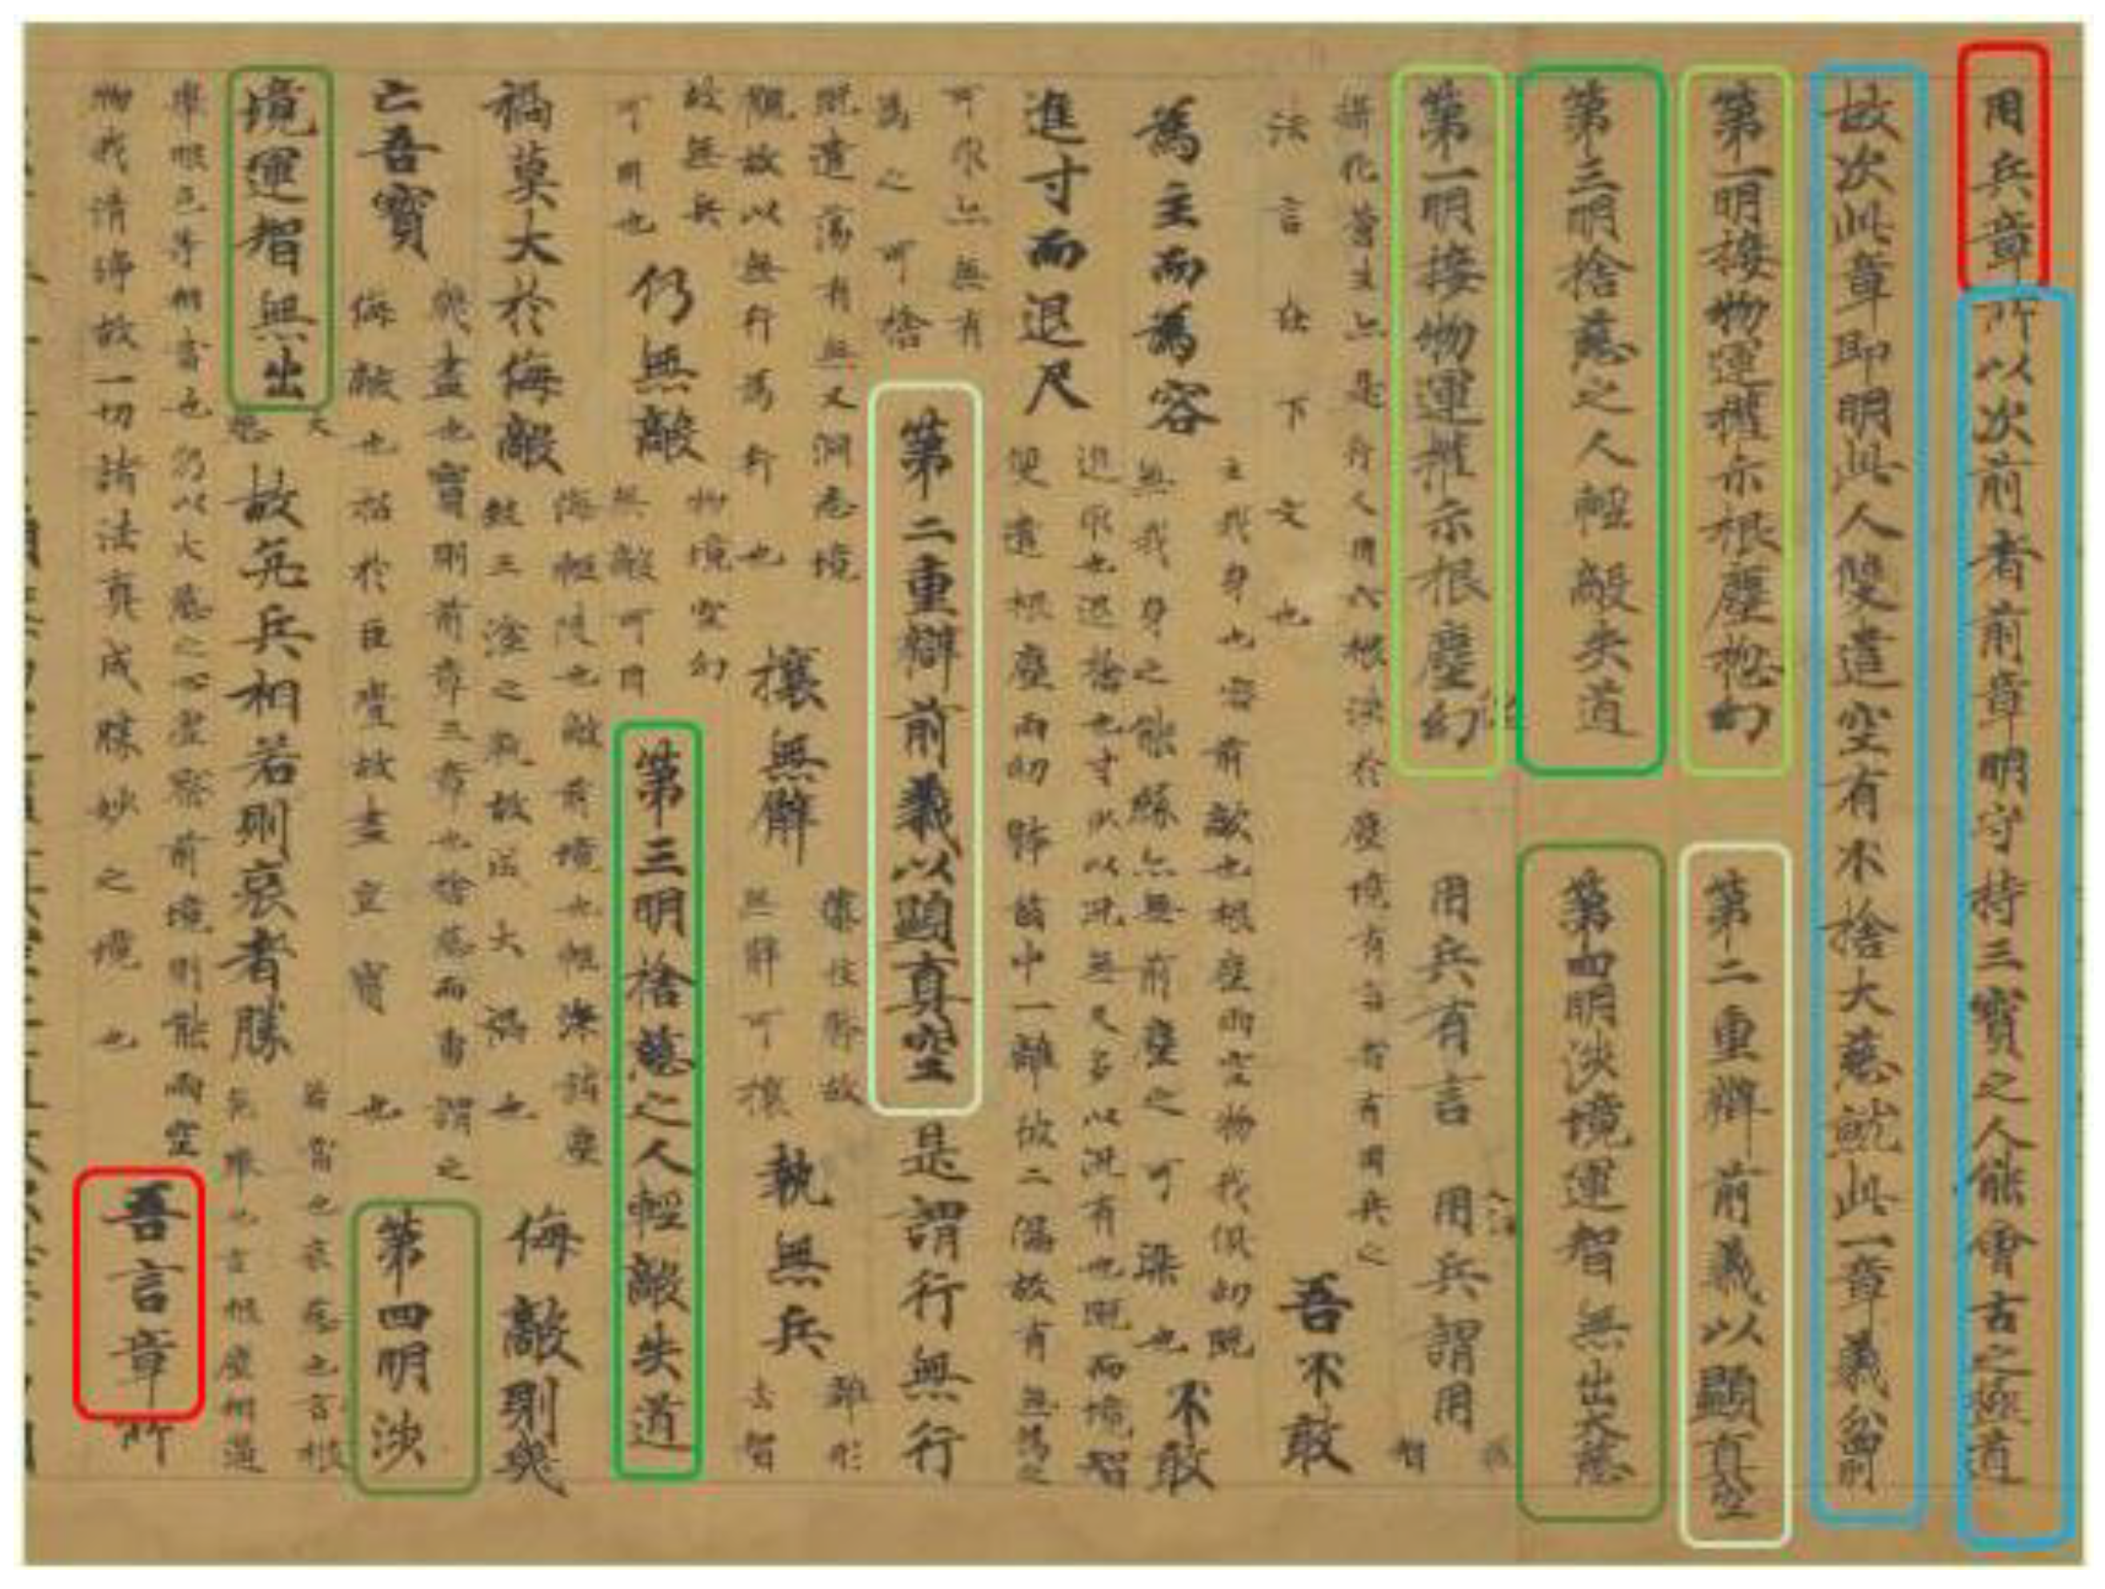 用兵章所以次前者前章明守持三寶之人能會古之極道
故次此章即明此人雙遣空有不捨大慈就此一章義
第一明接物運權示根塵怱幻 第二重辯前義以顯真空
第三明捨慈之人輕敵失道 第四明淡境運智無出大慈
第一明接物運權示根塵幻 用兵有言 用兵謂用 智
攝化蒼生是行人用六根決於塵境有者有用兵之
法言在下文也 吾不敢
為主而為容 主我身也容前敵也根塵兩空物我俱幻既
無我身之能緣亦無前塵之可染也 不敢
進寸而退尺 進取也退捨也寸少以況無尺多以況有也既而境智
雙遣根塵兩幻 中一離彼二偏故有無為之
可取亦無有
為之可捨 第二重辯前義以顯真空 是謂行無行
既遣蕩有無又洞忘境
觀故以無行為行也 攘無臂 攘從臂故
無臂可攘 執無兵 雖形
去智
故無兵
可用也 仍無敵 物境空幻
無敵可用 第三明捨慈之人輕敵失道
禍莫大於侮敵 侮輕陵也敵前境也輕染諸塵
致三塗之報故成大禍也 侮敵則幾
亡吾寶 幾盡也寶則前章三章也捨慈而貪謂之
侮敵也猶於臣故盡空寶也 第四明淡
境運智無出 大
慈 故抗兵相若則哀者勝 若當也哀慈也言根
抗舉也言根塵相逼
舉眼色等相當也仍以大慈之心虛察前境則能兩空
物我清淨故一切諸法真成勝妙之境也 吾言章所